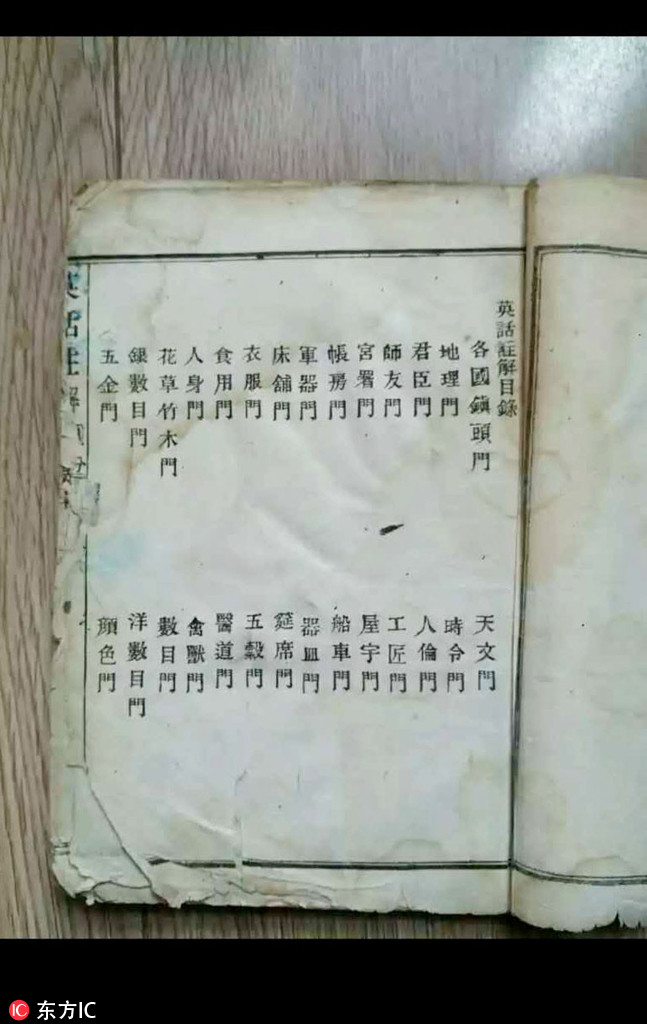 英話註解目錄
各國鎮頭門 天文門
地理門 時令門
君臣門 人倫門
師友門 工匠門
宮署門 屋宇門
帳房門 船車門
軍器門 器皿門
床舖門 筵席門
衣服門 五穀門
食用門 醫道門
人身門 禽獸門
花草竹木門 數目門
銀數目門 洋數目門
五金門 顔色門
英話註解
东方IC